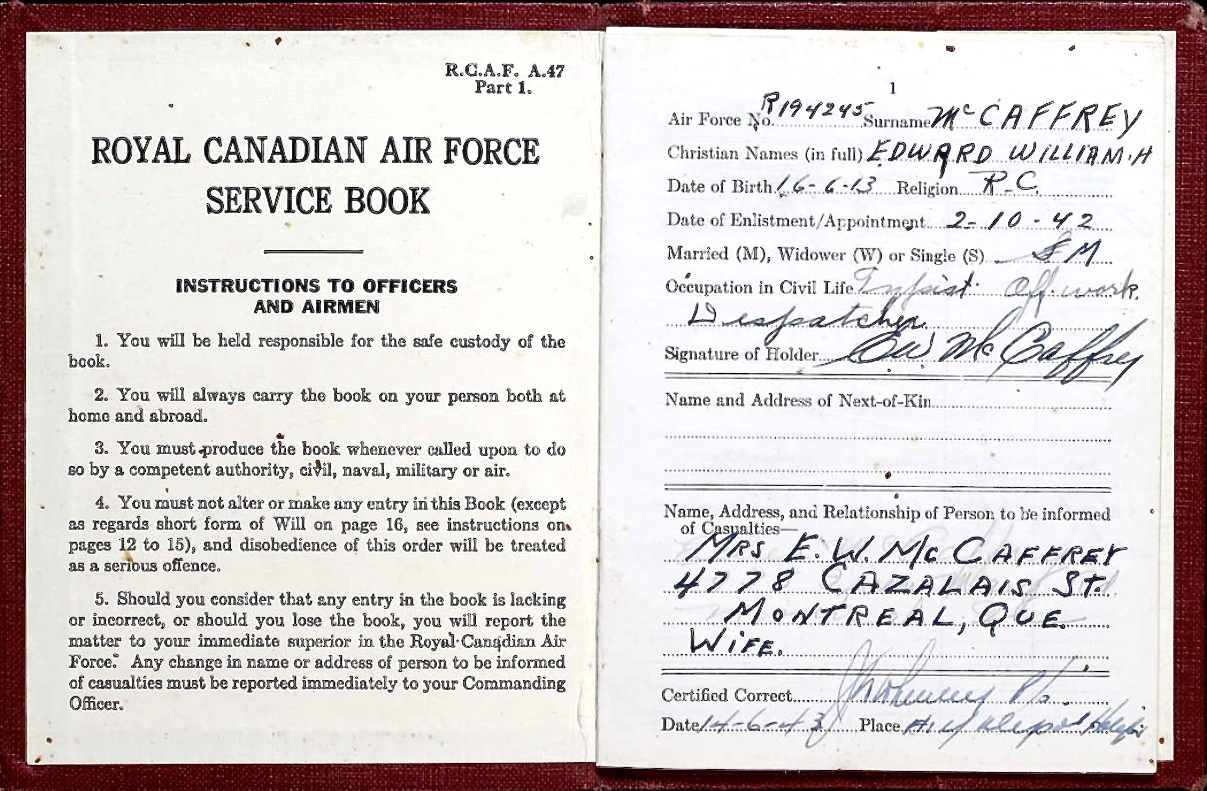 R.C.A.F. A.47
Part 1.
ROYAL CANADIAN AIR FORCE
SERVICE BOOK
INSTRUCTIONS TO OFFICERS
AND AIRMEN
1. You will be held responsible for the safe custody of the
book.
2. You will always carry the book on your person both at
home and abroad.
3. You must produce the book whenever called upon to do
so by a competent authority, civil, naval, military or air.
4. You must not alter or make any entry in this Book (except
as regards short form of Will on page 16, see instructions on
pages 12 to 15), and disobedience of this order will be treated
as a serious offence.
5. Should you consider that any entry in the book is lacking
or incorrect, or should you lose the book, you will report the
matter to your immediate superior in the Royal Canadian Air
Force. Any change in name or address of person to be informed
of casualties must be reported immediately to your Commanding
Officer.
1
Air Force No. R194245 Surname McCAFFREY
Christian Names (in full) EDWARD WILLIAM.H
Date of Birth 16-6-13 Religion R.C.
Date of Enlistment/Appointment 2-10-42
Married (M), Widower (W) or Single (S) M
Occupation in Civil Life Typist Off. work.
Despatcher
Signature of Holder EW McCaffrey
Name and Address of Next-of-Kin
Name, Address, and Relationship of Person to be informed
of Casualties—
MRS E. W. McCAFFREY
4778 CAZALAIS ST.
MONTREAL, QUE.
WIFE.
Certified Correct
Date 14-6-43 Place Halifax